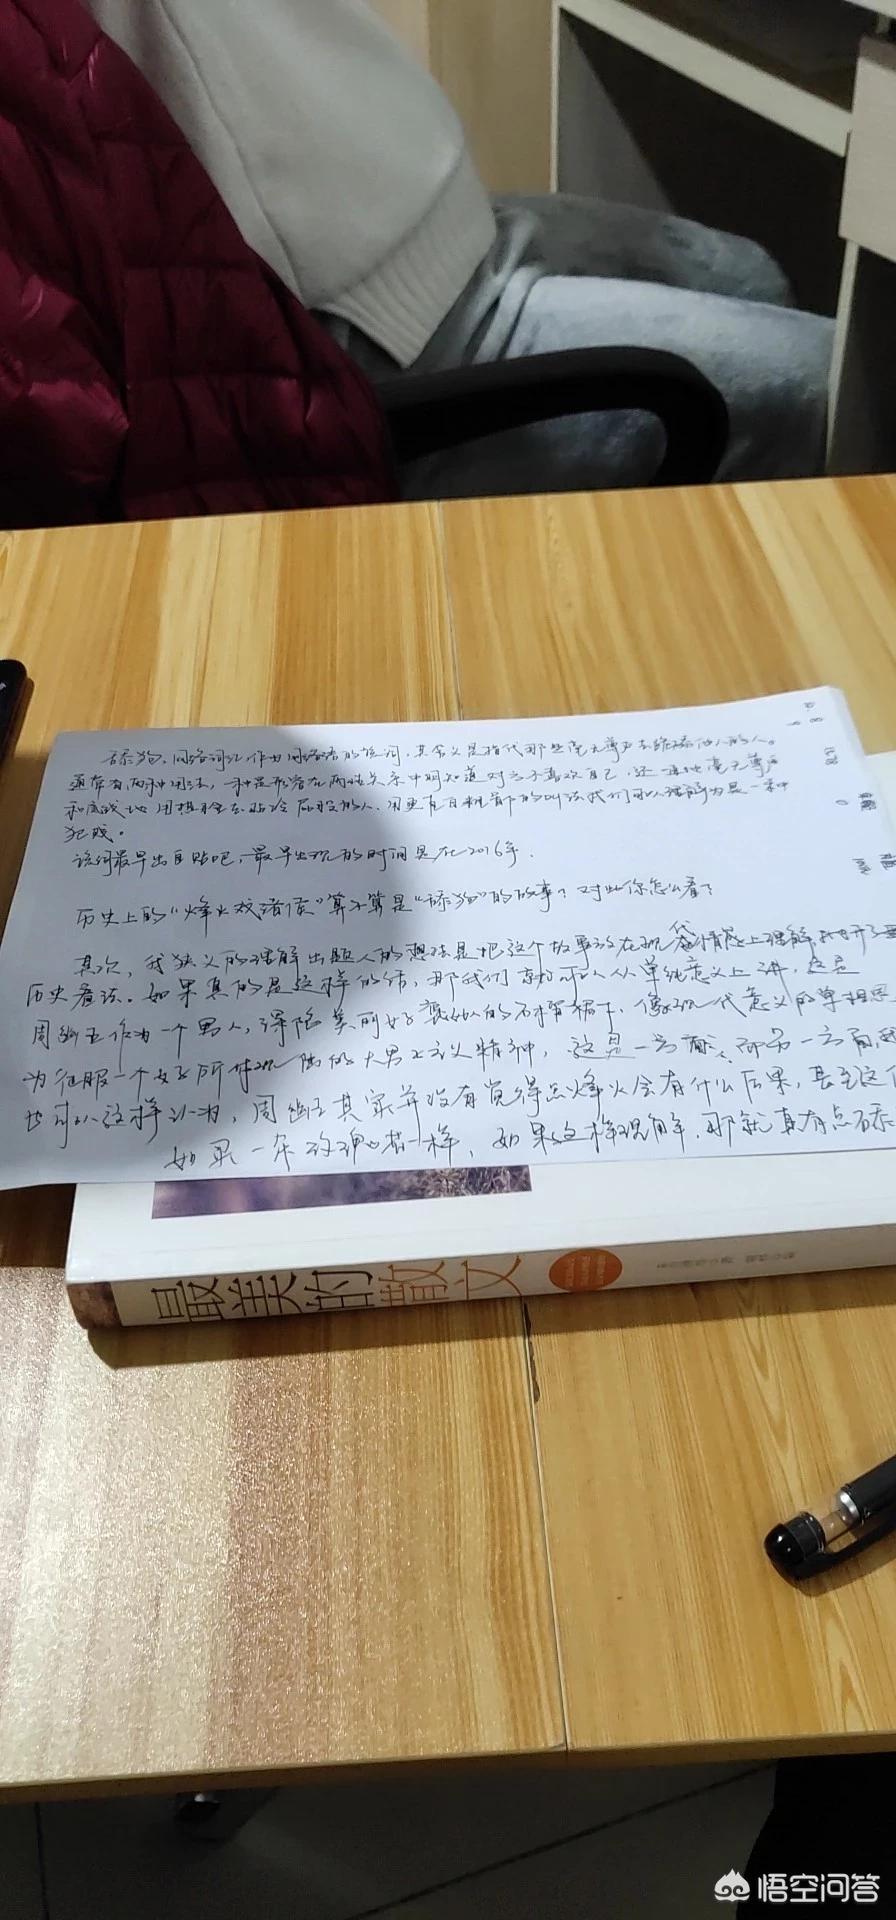 舔狗，网络词汇，作为网络语的名词，其含义是指代那些毫无尊严去舔他人的人。
通常有两种用法，一种是形容在两性关系中明知道对方不喜欢自己，还一再地毫无尊严
和底线地用热脸去贴冷屁股的人，用更有日耳曼的叫法我们可以理解为是一条中
犯贱。
该词最早出自贴吧，最早出现的时间是在2016年。
历史上的“烽火戏诸侯”算不算是“舔狗”的故事？对此你怎么看？
其次，我狭义的理解出题人的想法是把这个故事放在现代情感上理解，抛开了
历史看法。如果真的是这样的话，那我们从单纯意义上讲，这是
周幽王作为一个男人，深陷美丽女子褒姒的石榴裙下，像现代意义的单相思
为征服一个女子所体现出的大男子主义精神，这是一方面，而另一方面，我
也可以这样认为，周幽王其实并没有觉得点烽火会有什么后果，甚至这个
如买一朵玫瑰花一样，如果这样理解，那就真有点舔
最美的散文
悟空问答